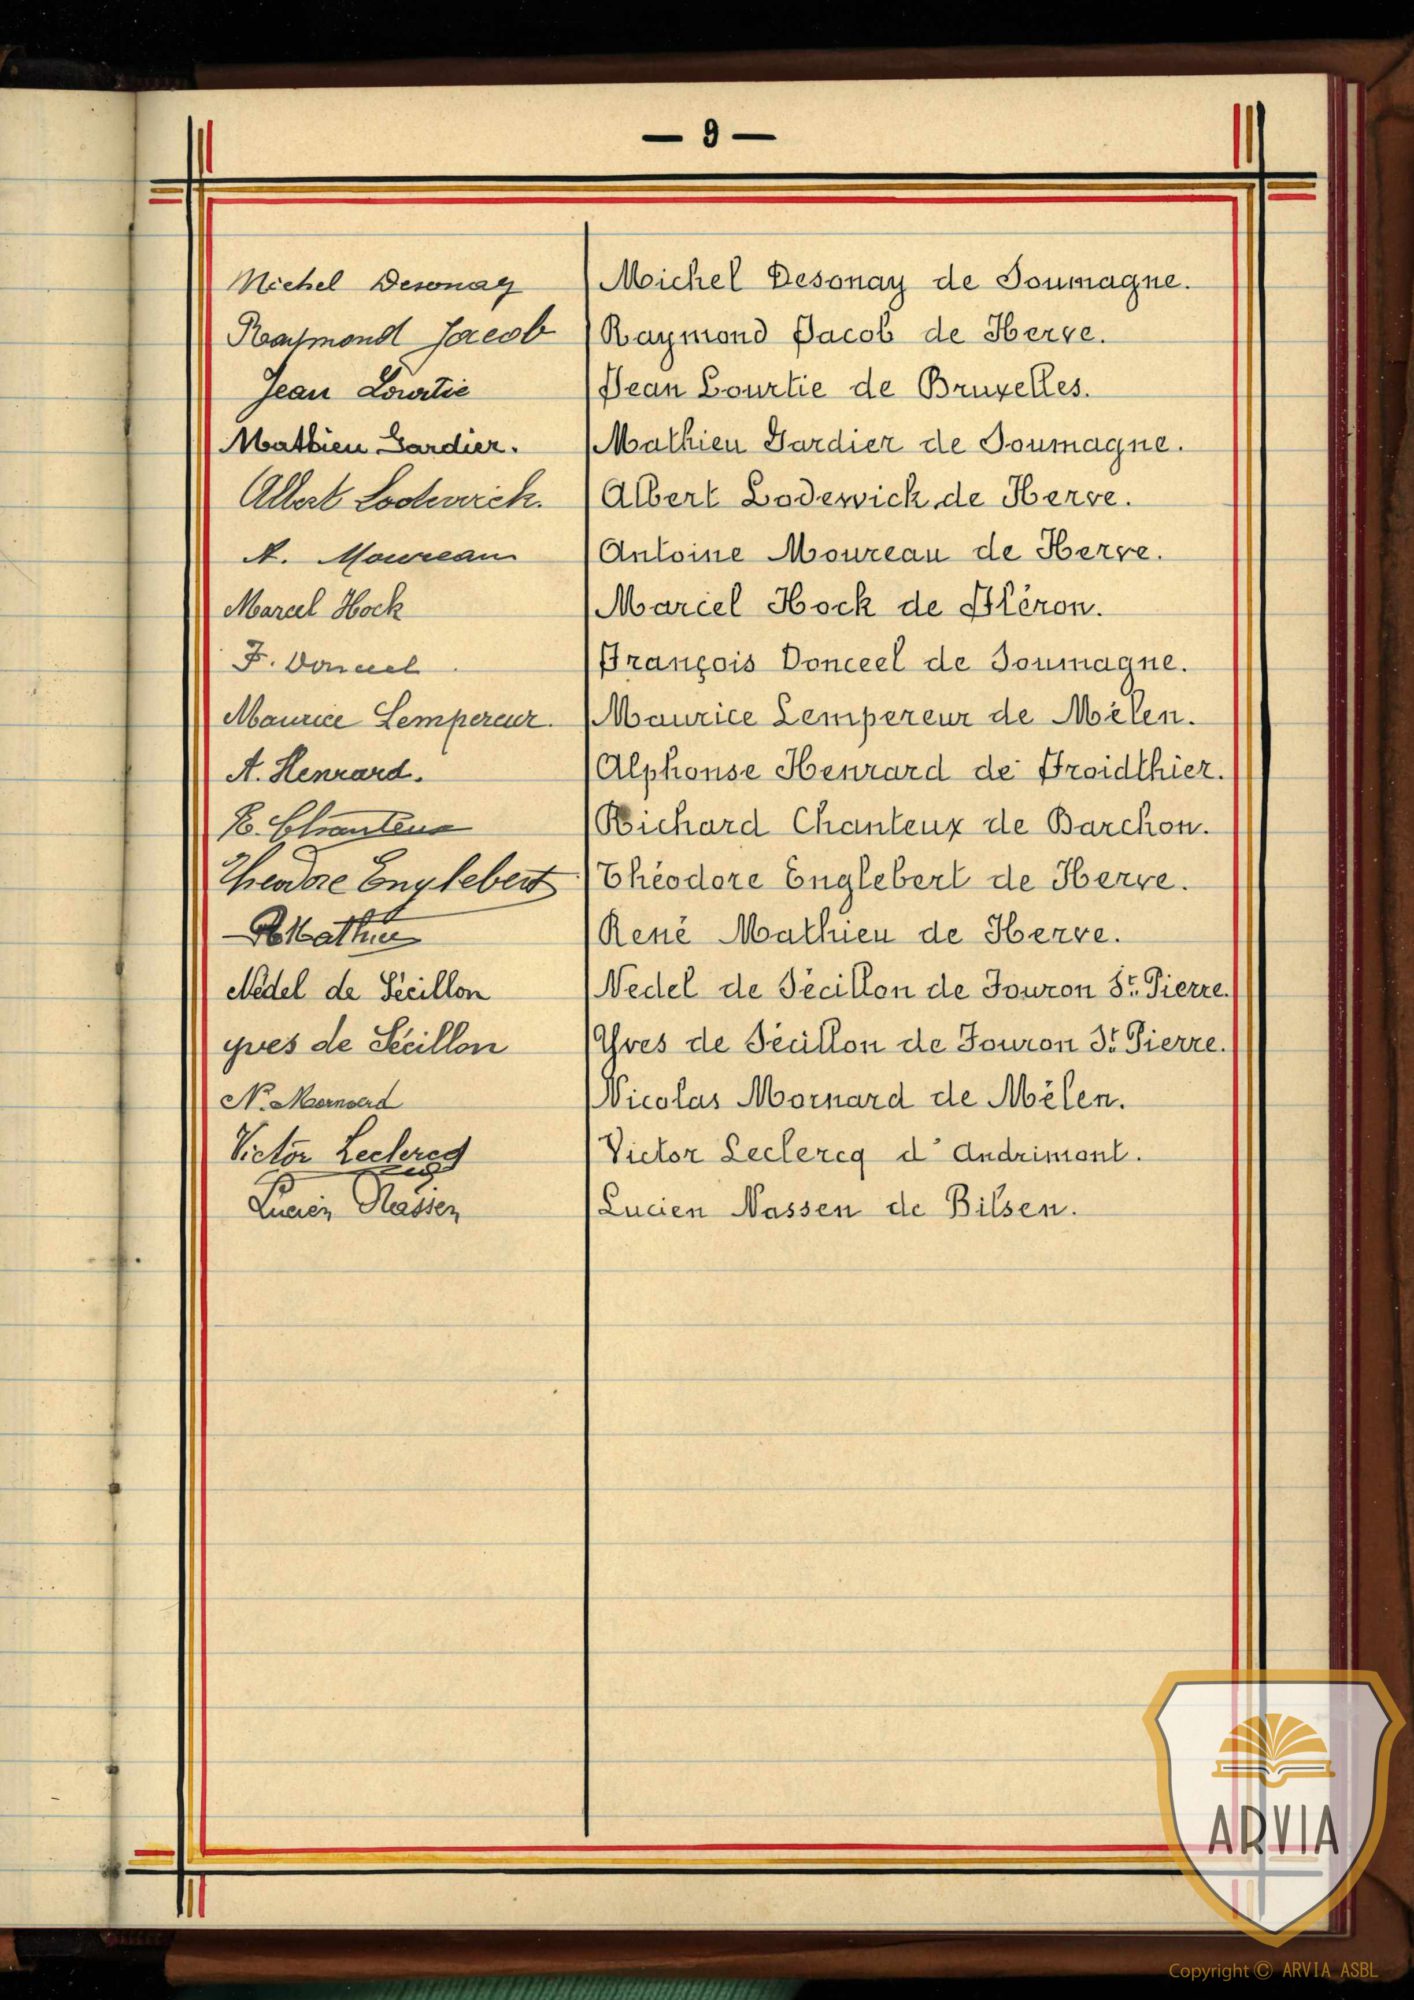 — 9 —
Michel Desonay Michel Desonay de Soumagne.
Raymond Jacob Raymond Jacob de Herve.
Jean Lourtie Jean Lourtie de Bruxelles.
Mathieu Gardier. Mathieu Gardier de Soumagne.
Albert Lodewick. Albert Lodewick de Herve.
A. Moureau Antoine Moureau de Herve.
Marcel Hock Marcel Hock de Fléron.
F. Donceel François Donceel de Soumagne.
Maurice Lempereur. Maurice Lempereur de Mélen.
A. Henrard. Alphonse Henrard de Froidthier.
R. Chanteux Richard Chanteux de Barchon.
Théodore Englebert Théodore Englebert de Herve.
R Mathieu René Mathieu de Herve.
Nédel de Sécillon Nedel de Sécillon de Fouron St. Pierre.
yves de Sécillon Yves de Sécillon de Fouron St. Pierre.
N. Mornard Nicolas Mornard de Mélen.
Victor Leclercq Victor Leclercq d'Andrimont.
Lucien Nassen Lucien Nassen de Bilsen.
ARVIA
Copyright © ARVIA ASBL